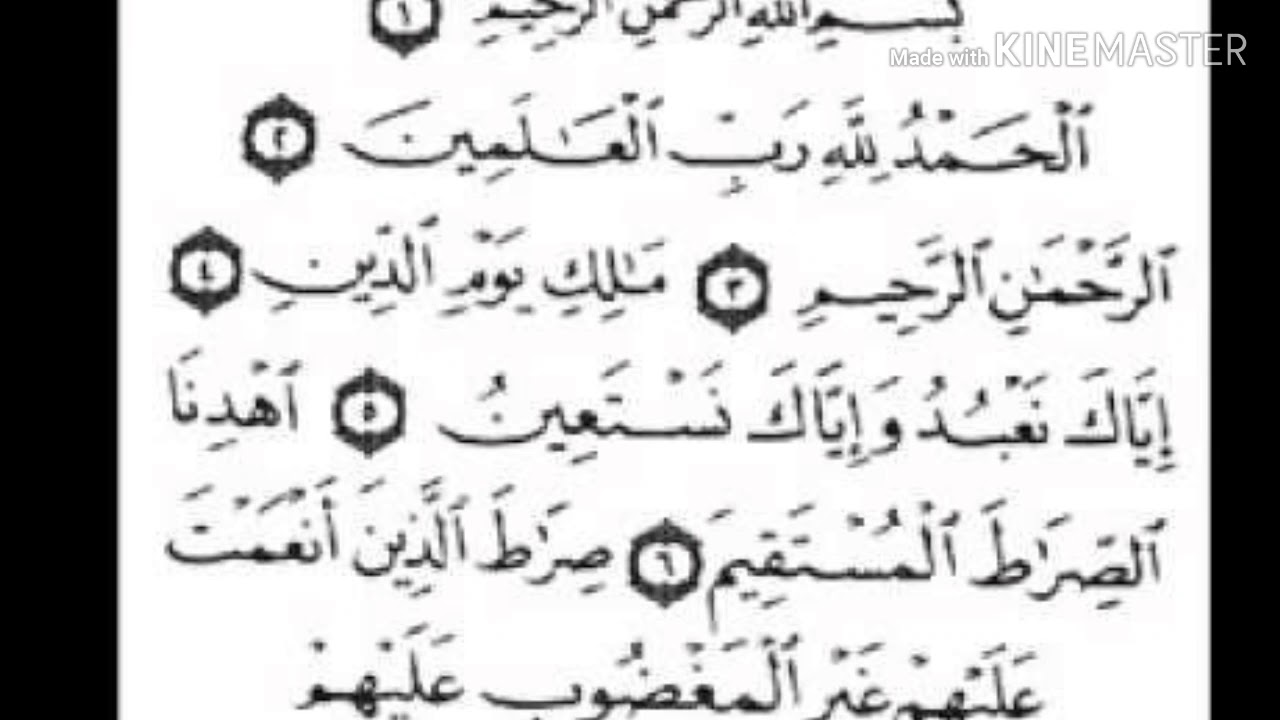 بِسْمِ ٱللَّهِ ٱلرَّحْمَٰنِ ٱلرَّحِيمِ ١
Made with KINEMASTER
ٱلْحَمْدُ لِلَّهِ رَبِّ ٱلْعَٰلَمِينَ ٢
ٱلرَّحْمَٰنِ ٱلرَّحِيمِ ٣ مَٰلِكِ يَوْمِ ٱلدِّينِ ٤
إِيَّاكَ نَعْبُدُ وَإِيَّاكَ نَسْتَعِينُ ٥ ٱهْدِنَا
ٱلصِّرَٰطَ ٱلْمُسْتَقِيمَ ٦ صِرَٰطَ ٱلَّذِينَ أَنْعَمْتَ
عَلَيْهِمْ غَيْرِ ٱلْمَغْضُوبِ عَلَيْهِمْ